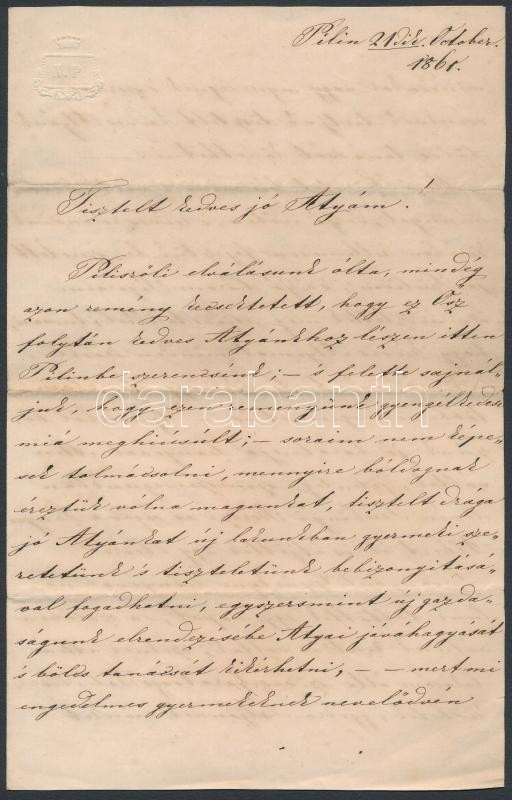 Pilin 21dik October.
1861.
Tisztelt kedves jó Atyám!
Piliszöli elválásunk ólta, mindég
azon remény kecsektetett, hogy ez Ősz
folytán kedves Atyánkhoz lészen itten
Pilinbe szerencsénk; – 's felette sajnál-
juk, hogy ezen reményünk gyengélkedése
miá meghiúsúlt; – soraim nem képe-
sek tolmácsolni, mennyire bóldognak
éreztük vólna magunkat, tisztelt drága
jó Atyánkat új lakunkban gyermeki sze-
retetünk 's tiszteletünk bebizonyításá-
val fogadhatni, egyszersmint új gazda-
ságunk elrendezésébe Atyai jóváhagyását
's bölcs tanácsát kikérhetni, – – mert mi
engedelmes gyermekeknek nevelődvén
darabanth